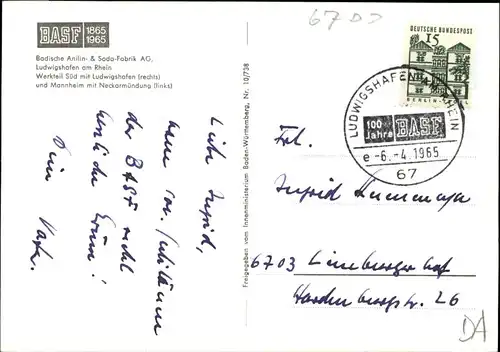 67 DD
BASF 1865
1965
Badische Anilin- & Soda-Fabrik AG,
Ludwigshafen am Rhein
Werkteil Süd mit Ludwigshafen (rechts)
und Mannheim mit Neckarmündung (links)
Freigegeben vom Innenministerium Baden-Württemberg, Nr. 10/738
Liebe Ingrid,
zum 100. Jubiläum
der BASF recht
herzliche Grüsse!
Dein Vater.
DEUTSCHE BUNDESPOST
15
BERLIN
LUDWIGSHAFEN AM RHEIN
100
Jahre BASF
e -6.-4.1965
67
Frl.
Ingrid
6703 Limburgerhof
Hardenburgstr. 26
DA